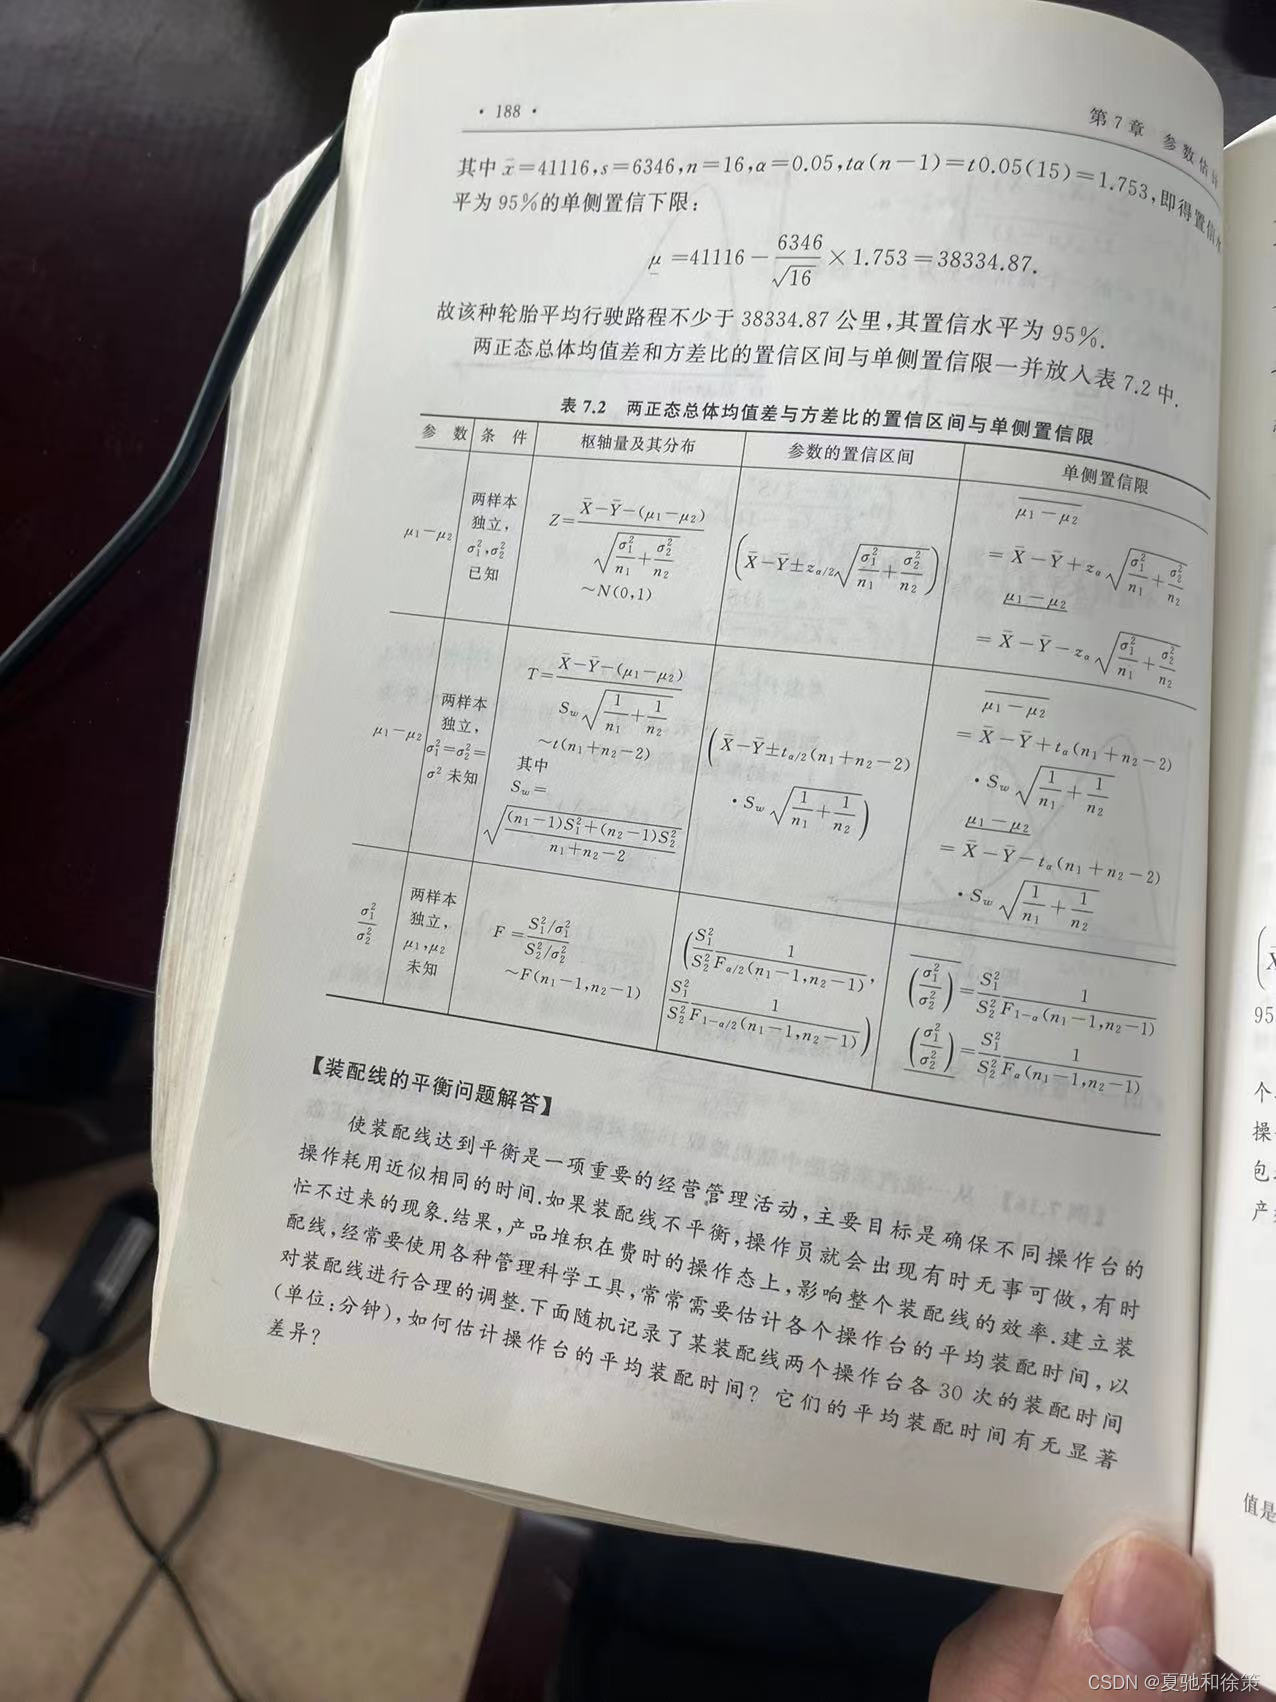 · 188 ·
第7章 参数估计
其中 x̄=41116,s=6346,n=16,α=0.05,tα(n-1)=t0.05(15)=1.753,即得置信水
平为95%的单侧置信下限:
μ=41116-6346/√16×1.753=38334.87.
故该种轮胎平均行驶路程不少于38334.87公里,其置信水平为95%.
两正态总体均值差和方差比的置信区间与单侧置信限一并放入表7.2中.
表7.2 两正态总体均值差与方差比的置信区间与单侧置信限
参 数 条 件 枢轴量及其分布 参数的置信区间 单侧置信限
μ₁-μ₂
两样本
独立,
σ₁²,σ₂²
已知
Z=(X̄-Ȳ-(μ₁-μ₂))/√(σ₁²/n₁+σ₂²/n₂)
~N(0,1)
(X̄-Ȳ±z_{α/2}√(σ₁²/n₁+σ₂²/n₂))
μ₁-μ₂
=X̄-Ȳ+z_α√(σ₁²/n₁+σ₂²/n₂)
μ₁-μ₂
=X̄-Ȳ-z_α√(σ₁²/n₁+σ₂²/n₂)
μ₁-μ₂
两样本
独立,
σ₁²=σ₂²=
σ²未知
T=(X̄-Ȳ-(μ₁-μ₂))/(S_w√(1/n₁+1/n₂))
~t(n₁+n₂-2)
其中
S_w=
√(((n₁-1)S₁²+(n₂-1)S₂²)/(n₁+n₂-2))
(X̄-Ȳ±t_{α/2}(n₁+n₂-2)
·S_w√(1/n₁+1/n₂))
μ₁-μ₂
=X̄-Ȳ+t_α(n₁+n₂-2)
·S_w√(1/n₁+1/n₂)
μ₁-μ₂
=X̄-Ȳ-t_α(n₁+n₂-2)
·S_w√(1/n₁+1/n₂)
σ₁²/σ₂²
两样本
独立,
μ₁,μ₂
未知
F=(S₁²/σ₁²)/(S₂²/σ₂²)
~F(n₁-1,n₂-1)
(S₁²/S₂² 1/F_{α/2}(n₁-1,n₂-1),
S₁²/S₂² 1/F_{1-α/2}(n₁-1,n₂-1))
(σ₁²/σ₂²)=S₁²/S₂² 1/F_{1-α}(n₁-1,n₂-1)
(σ₁²/σ₂²)=S₁²/S₂² 1/F_α(n₁-1,n₂-1)
【装配线的平衡问题解答】
使装配线达到平衡是一项重要的经营管理活动,主要目标是确保不同操作台的
操作耗用近似相同的时间.如果装配线不平衡,操作员就会出现有时无事可做,有时
忙不过来的现象.结果,产品堆积在费时的操作态上,影响整个装配线的效率.建立装
配线,经常要使用各种管理科学工具,常常需要估计各个操作台的平均装配时间,以
对装配线进行合理的调整.下面随机记录了某装配线两个操作台各30次的装配时间
(单位:分钟),如何估计操作台的平均装配时间?它们的平均装配时间有无显著
差异?
95
个
操
包
产
值是
CSDN @夏驰和徐策